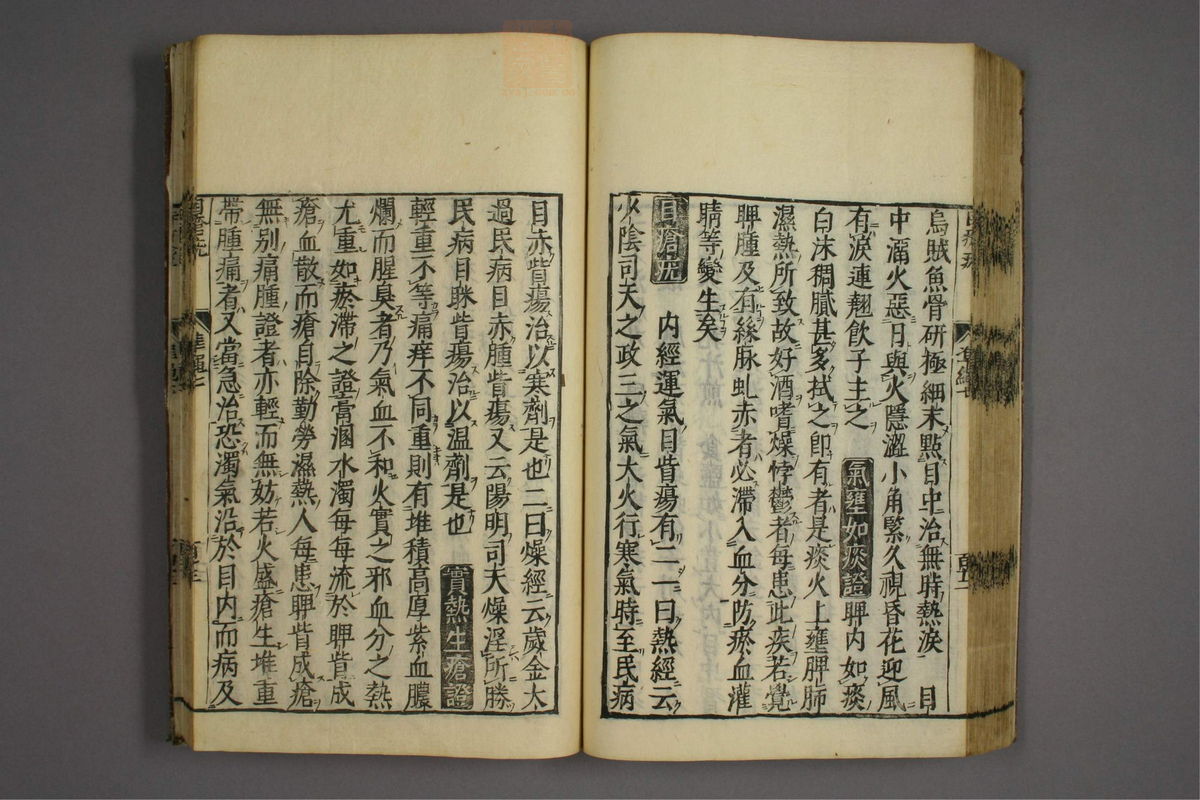 烏賊魚骨研極細末點目中治無時熱淚　目
中溜火惡日與火隱澀小角緊久視昏花迎風
有淚連翹飲子主之　氣壅如痰證　睥內如痰
白沫稠膩甚多拭之即有者是痰火上壅脾肺
濕熱所致故好酒嗜燥悖鬱者每患此疾若覺
睥腫及有絲脉虬赤者必滯入血分防瘀血灌
睛等變生矣
目瘡疣　內經運氣目眥瘍有二一曰熱經云
少陰司天之政三之氣大火行寒氣時至民病
目赤眥瘍治以寒劑是也二曰燥經云歲金太
過民病目赤腫眥瘍又云陽明司天燥淫所勝
民病目眯眥瘍治以温劑是也　實熱生瘡證
輕重不等痛痒不同重則有堆積高厚紫血膿
爛而腥臭者乃氣血不和火實之邪血分之熱
尤重如瘀滯之證膏溷水濁每每流於睥眥成
瘡血散而瘡自除勤勞濕熱人每患睥眥成瘡
無別痛腫證者亦輕而無妨若火盛瘡生堆重
帶腫痛者又當急治恐濁氣沿於目內而病及